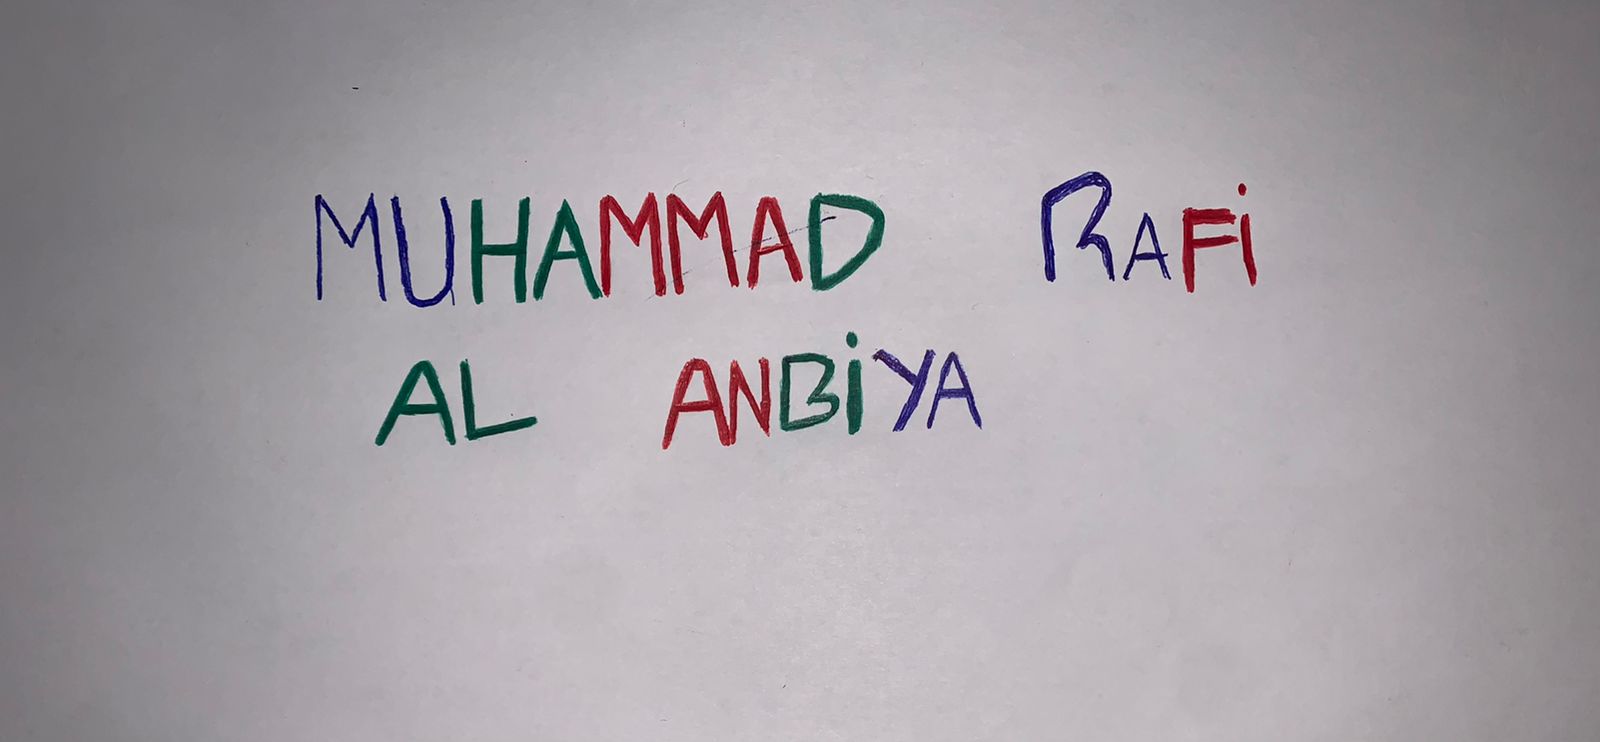 MUHAMMAD RAFi
AL ANBiYA